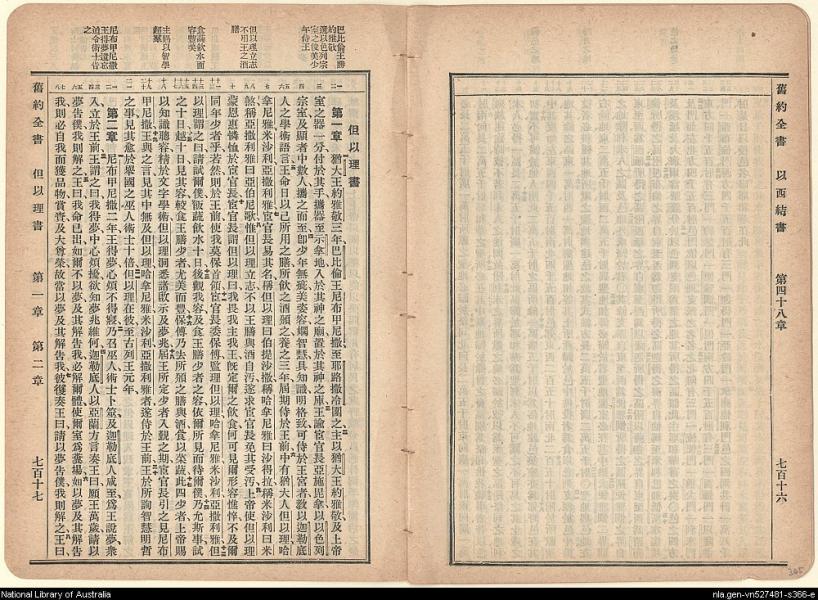 舊約全書 以西結書 第四十八章 七百十六
巴比倫王勝
約雅敬
選以色列宗
室之俊美少
年侍王
但以理立志
不用王之酒
膳
食蔬飲水而
容豐美
主賜以智學
超羣
尼布甲尼撒
王得夢遺忘
遂令術士告
之
但以理書
第一章 猶大王約雅敬三年巴比倫王尼布甲尼撒至耶路撒冷圍之主以猶大王約雅敬及上帝
室之器一分付於其手攜器至示拿地入於其神之廟置於其神之庫王諭宦官長亞施毘拿以以色列
宗室及顯者中數人攜之而至卽少年無疵美姿容嫺智慧具知識明格致可侍於王宮者敎以迦勒底
人之學術語言王命日以己所用之膳所飲之酒頒之養之三年屆期侍於王前中有猶大人但以理哈
拿尼雅米沙利亞撒利雅宦官長易其名稱但以理曰伯提沙撒稱哈拿尼雅曰沙得拉稱米沙利曰米
煞稱亞撒利雅曰亞伯尼歌惟但以理立志不以王膳與酒自污遂求宦官長免其受污上帝使但以理
蒙恩惠憐恤於宦官長宦官長謂但以理曰我畏我主我王旣定爾之飲食何可見爾形容憔悴不及爾
同年少者乎若然則於王前使我莫保首領宦官長委保傅監理但以理哈拿尼雅米沙利亞撒利雅但
以理謂之曰請試爾僕飯蔬飲水十日後觀我容及食王膳少者之容依爾所見而待爾僕乃允斯事試
之十日越十日見其容較食王膳少者尤美而豐保傅乃去所頒之膳與酒食以菜蔬此四少者上帝賜
以知識聰容精於文字學術但以理洞悉諸啟示及夢兆屆王所定少者入覲之期宦官長引之見尼布
甲尼撒王與之言見其中無及但以理哈拿尼雅米沙利亞撒利雅者遂侍於王前王於所詢智慧明哲
之事見其愈於舉國之巫人術士十倍但以理在彼至古列王元年
第二章 尼布甲尼撒二年王得夢心煩不得寢乃召巫人術士卜筮及迦勒底人咸至爲王說夢衆
入立於王前王謂之曰我得夢中心煩擾欲知夢兆維何迦勒底人以亞蘭方言奏王曰願王萬歲請以
夢告僕我則解之王曰我命已出如爾不以夢及其解告我必解爾體使爾室爲糞場如以夢及其解告
我則必自我而獲品物賞賚及大尊榮故當以夢及其解告我彼復奏王曰請以夢告僕我則解之王曰
舊約全書 但以理書 第一章 第二章 七百十七
305
National Library of Australia
nla.gen-vn527481-s366-e